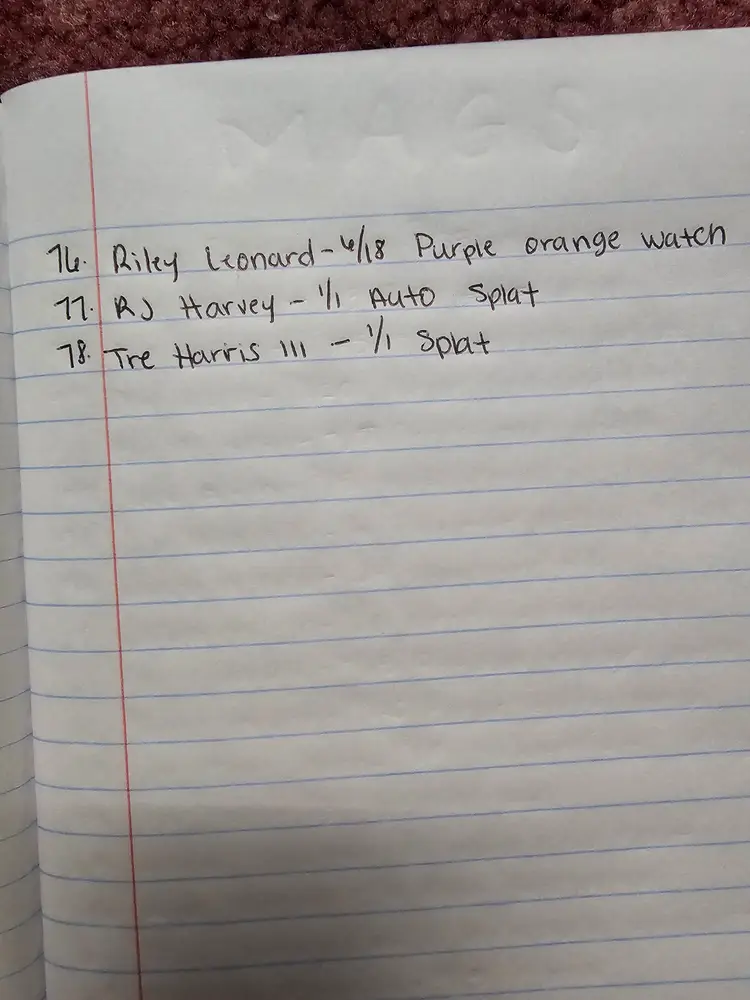 MAGS
76. Riley Leonard - 6/18 Purple orange watch
77. RJ Harvey - 1/1 Auto Splat
78. Tre Harris III - 1/1 Splat